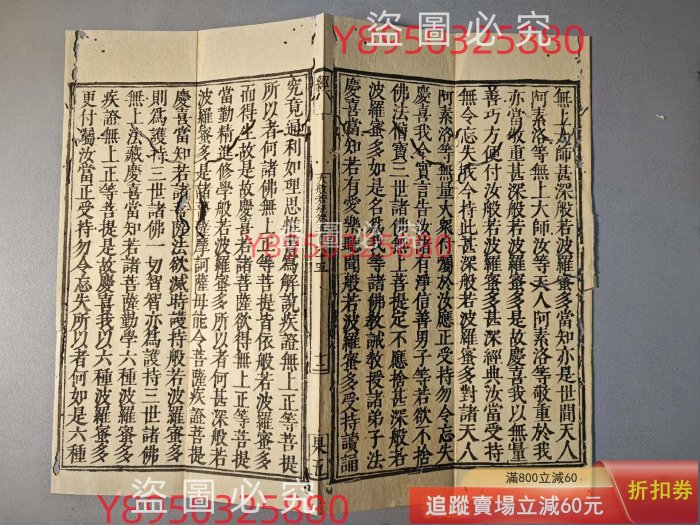 無上大師甚深般若波羅蜜多當知亦是世間天人
阿素洛等無上大師汝等天人阿素洛等敬重於我
亦當敬重甚深般若波羅蜜多是故慶喜我以無量
善巧方便付汝般若波羅蜜多甚深經典汝當受持
無令忘失我今持此甚深般若波羅蜜多對諸天人
阿素洛等無量大衆付囑於汝應正受持勿令忘失
慶喜我今實言告汝諸有淨信善男子等若欲不捨
佛法僧寶三世諸佛無上菩提定不應捨甚深般若
波羅蜜多如是名爲我等諸佛教誡教授諸弟子法
慶喜當知若有愛樂聽聞般若波羅蜜多受持讀誦
經
十二
究竟通利如理思惟廣爲解說疾證無上正等菩提
所以者何諸佛無上正等菩提皆依般若波羅蜜多
而得生故是故慶喜若諸菩薩欲得無上正等菩提
當勤精進修學般若波羅蜜多所以者何甚深般若
波羅蜜多是諸菩薩摩訶薩母能令菩薩疾證菩提
慶喜當知若諸菩薩法欲滅時護持般若波羅蜜多
則爲護持三世諸佛一切智智亦爲護持三世諸佛
無上法藏慶喜當知若諸菩薩勤學六種波羅蜜多
疾證無上正等菩提是故慶喜我以六種波羅蜜多
更付囑汝當正受持勿令忘失所以者何如是六種
盜圖必究
Y8950325880
盜圖必究
Y8950325880
盜圖必究
Y8950325880
滿800立減60
追蹤賣場立減60元
折扣券